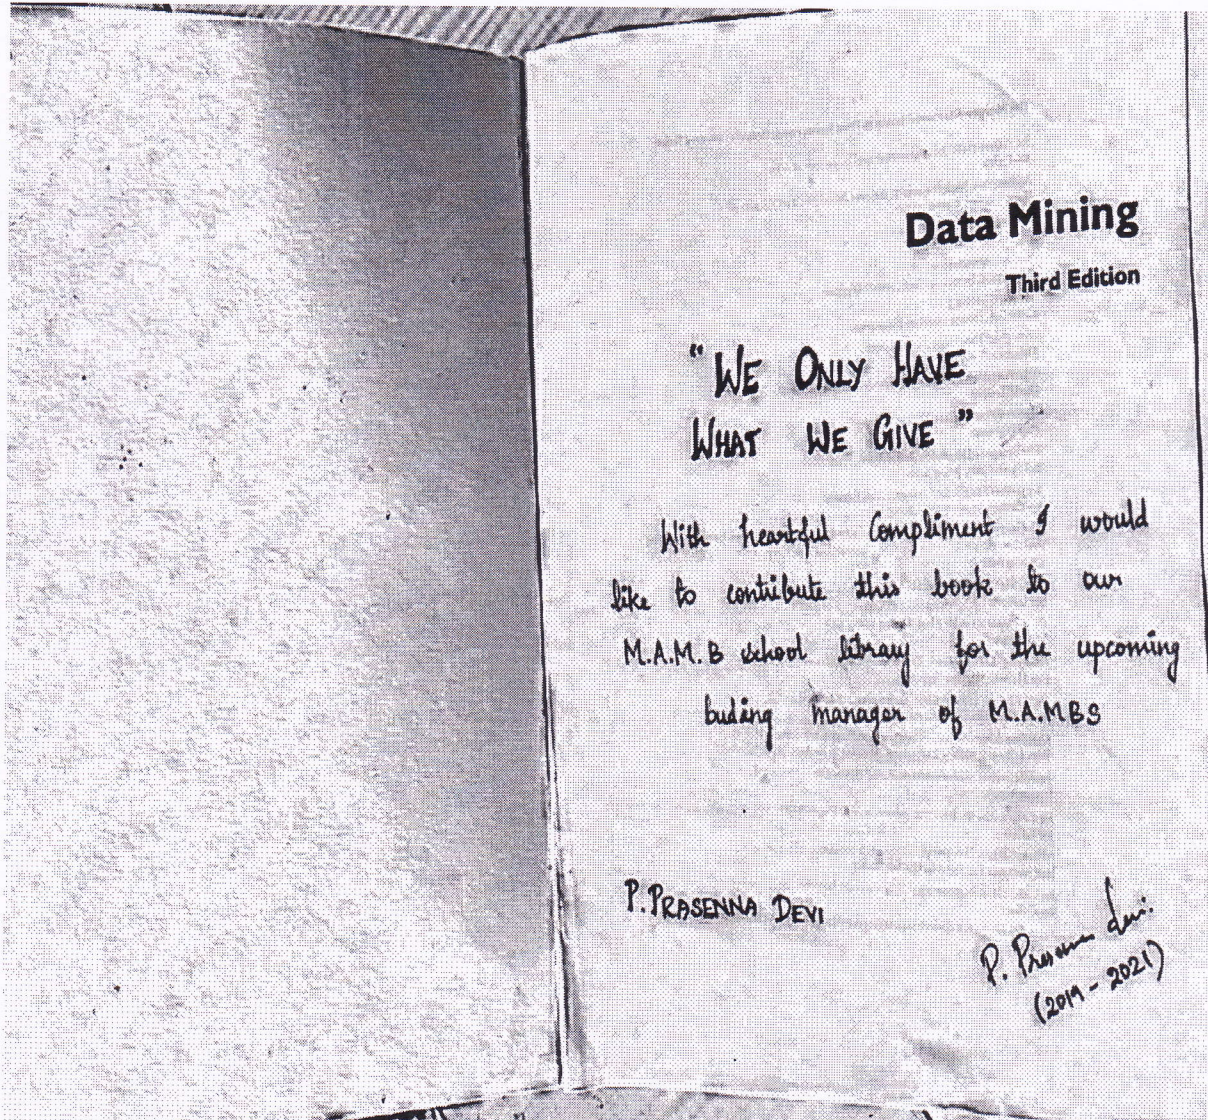 Data Mining
Third Edition
"WE ONLY HAVE
WHAT WE GIVE"
With heartful Compliment I would
like to contribute this book to our
M.A.M.B school library for the upcoming
buding manager of M.A.MBS
P. PRASENNA DEVI
P. Prasenna Devi.
(2019 - 2021)